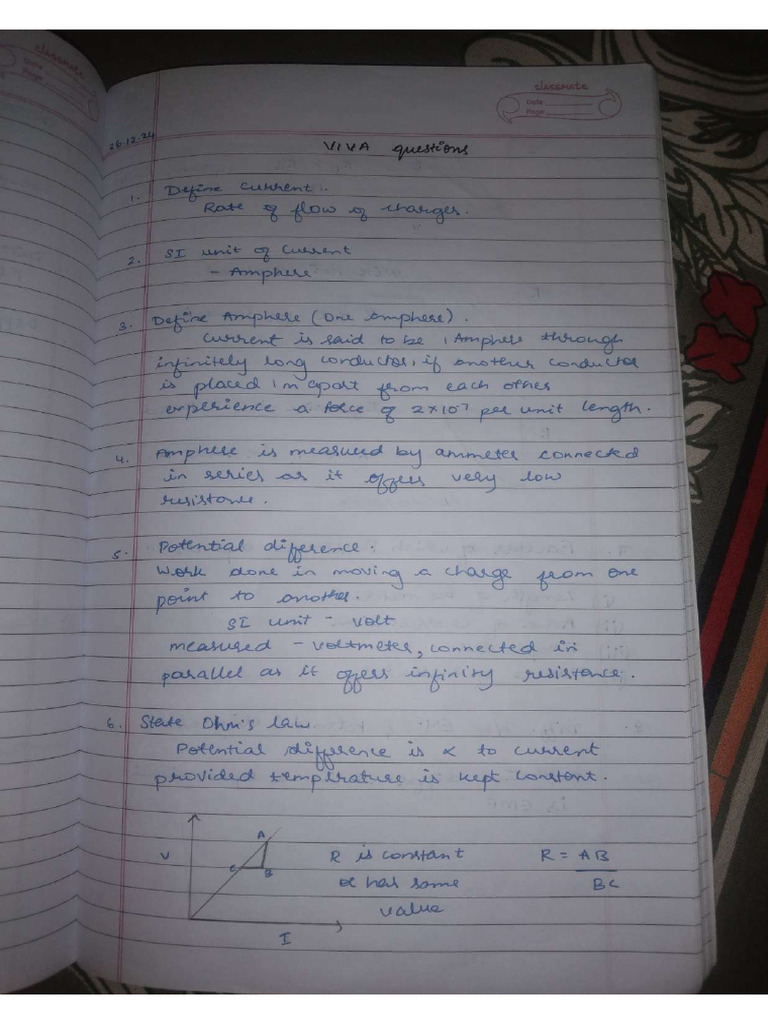 classmate
Date
Page
classmate
Date
Page
26.12.24
VIVA questions
1. Define Current :.
Rate of flow of charges.
2. SI unit of Current
- Amphere
3. Define Amphere (One Amphere).
Current is said to be 1 Amphere through
infinitely long conductor, if another conductor
is placed 1m apart from each other
experience a force of 2×10⁻⁷ per unit length.
4. Amphere is measured by ammeter connected
in series as it offers very low
resistance.
5. Potential difference.
Work done in moving a charge from one
point to another.
SI unit - volt
measured - voltmeter, connected in
parallel as it offers infinity resistance.
6. State Ohm's law.
Potential difference is ∝ to current
provided temperature is kept constant.
A
V
C
B
I
R is constant
∝ has same
value
R = AB
BC